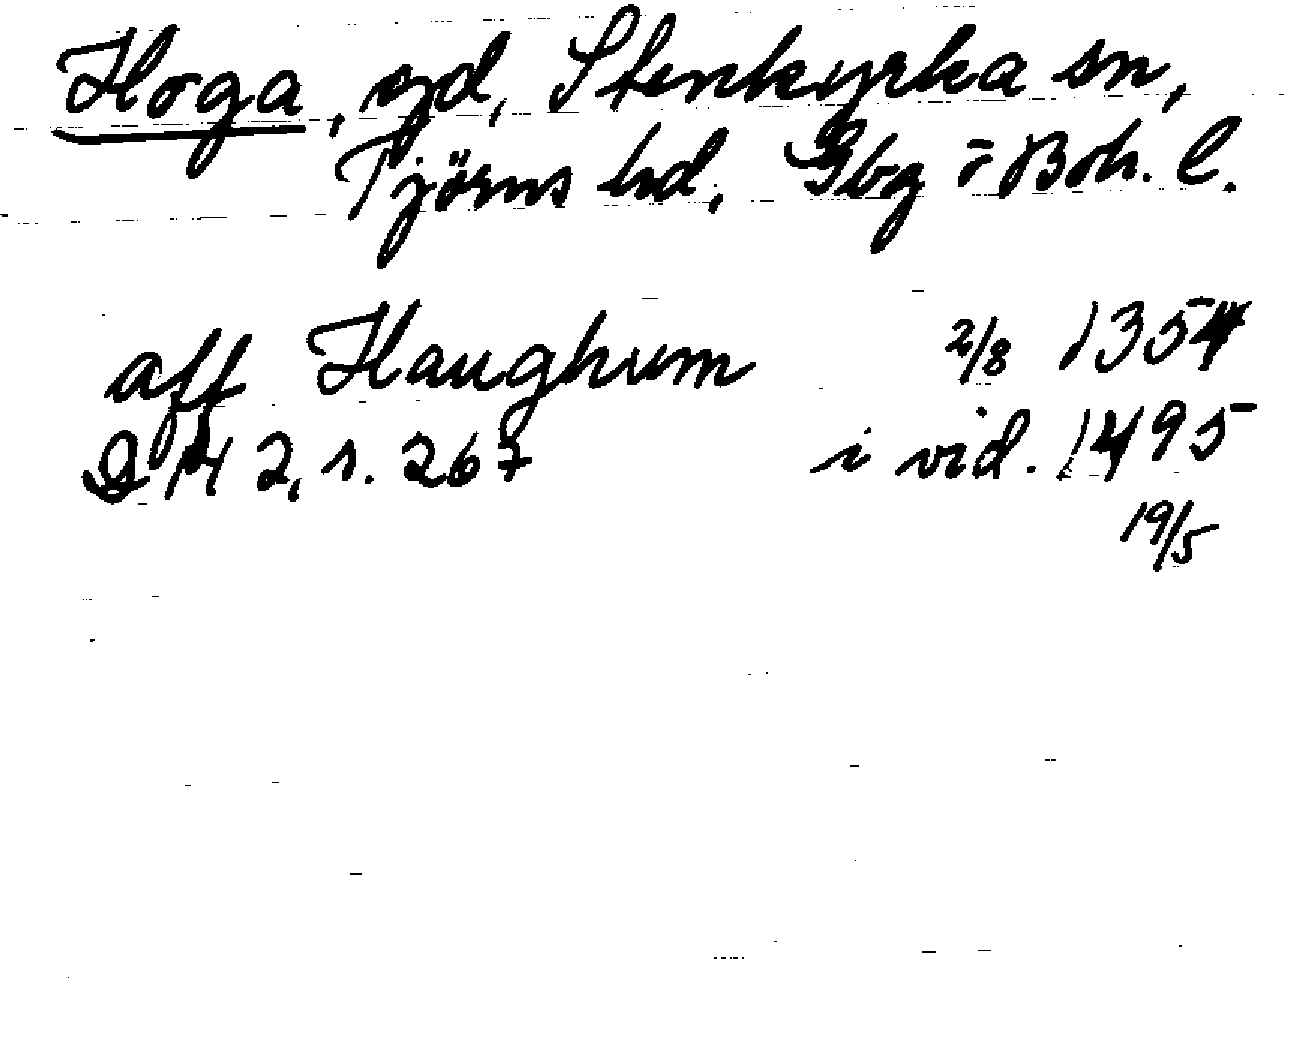 Hoga, gd, Stenkyrka sn,
Tjörns hd, Gbg o Boh. l.
aff Haughum 2/8 1354
DN 2, s. 267 i vid. 1495
19/5